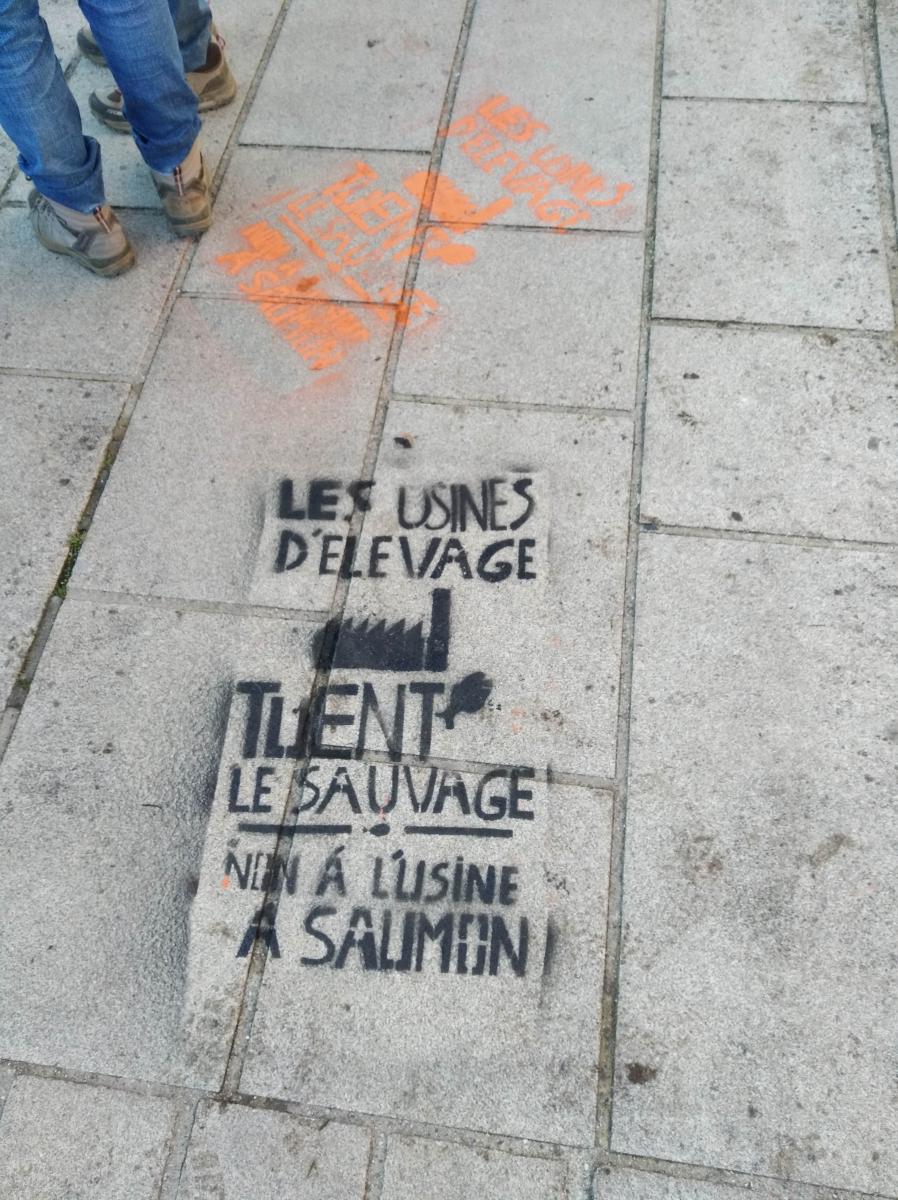 LES USINES
D'ELEVAGE
TUENT
LE SAUVAGE
NON À L'USINE
A SAUMON
LES USINES
D'ELEVAGE
TUENT
LE SAUVAGE
NON À L'USINE
À SAUMON